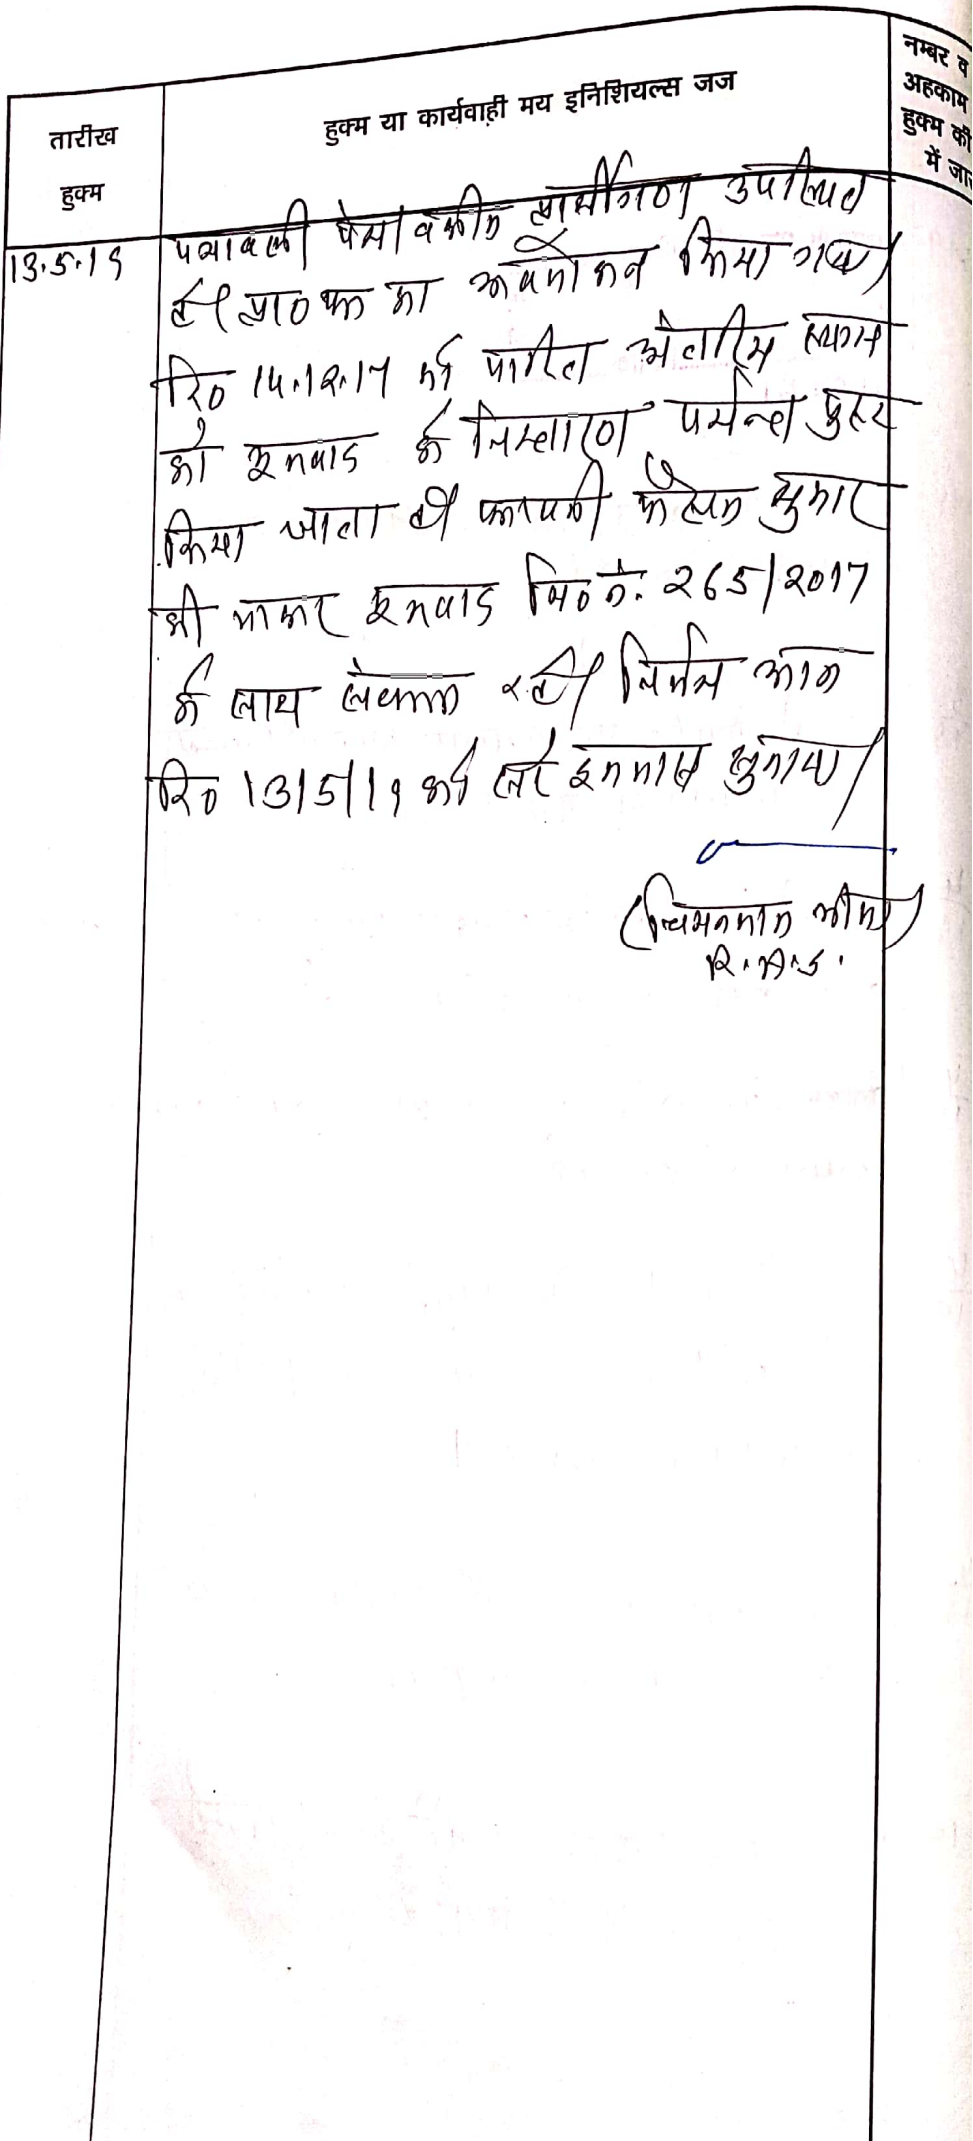 तारीख
हुक्म
हुक्म या कार्यवाही मय इनिशियल्स जज
नम्बर व
अहकाम
हुक्म की
में जा
13.5.19
पत्रावली पेश। वकील प्रार्थीगण उपस्थित
है। प्रा० पत्र का अवलोकन किया गया।
दि० 14.12.17 को पारित अंतरिम स्थगन
को मूलवाद के निस्तारण पर्यन्त पुष्ट
किया जाता है। पत्रावली फैसल शुमार
की जाकर मूलवाद मि० नं. 265/2017
के साथ संलग्न रहे। निर्णय आज
दि० 13/5/19 को सरे इजलास सुनाया।
(चिमनलाल मीणा)
R.A.S.